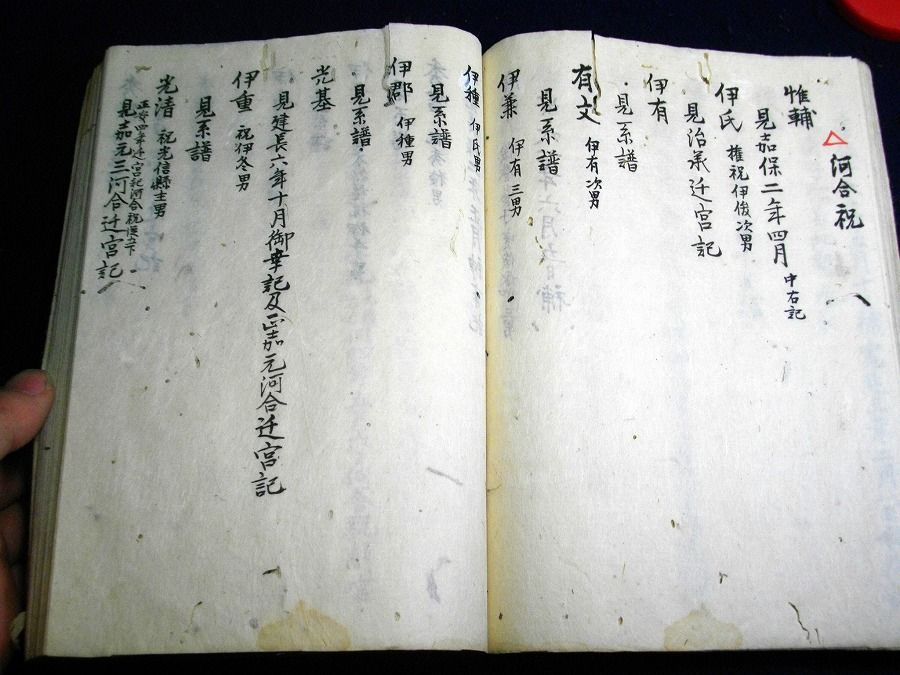 △ 河合祝
惟輔
見嘉保二年四月 中右記
伊氏 権祝伊俊次男
見治承迁宮記
伊有
見系譜
有文 伊有次男
見系譜
伊兼 伊有三男
伊種 伊氏男
見系譜
伊郡 伊種男
見系譜
光基
見建長六年十月御幸記及正嘉元河合迁宮記
伊重 祝伊冬男
見系譜
光清 祝光信縣主男
正安四年迁宮記河合祝
見嘉元三河合迁宮記